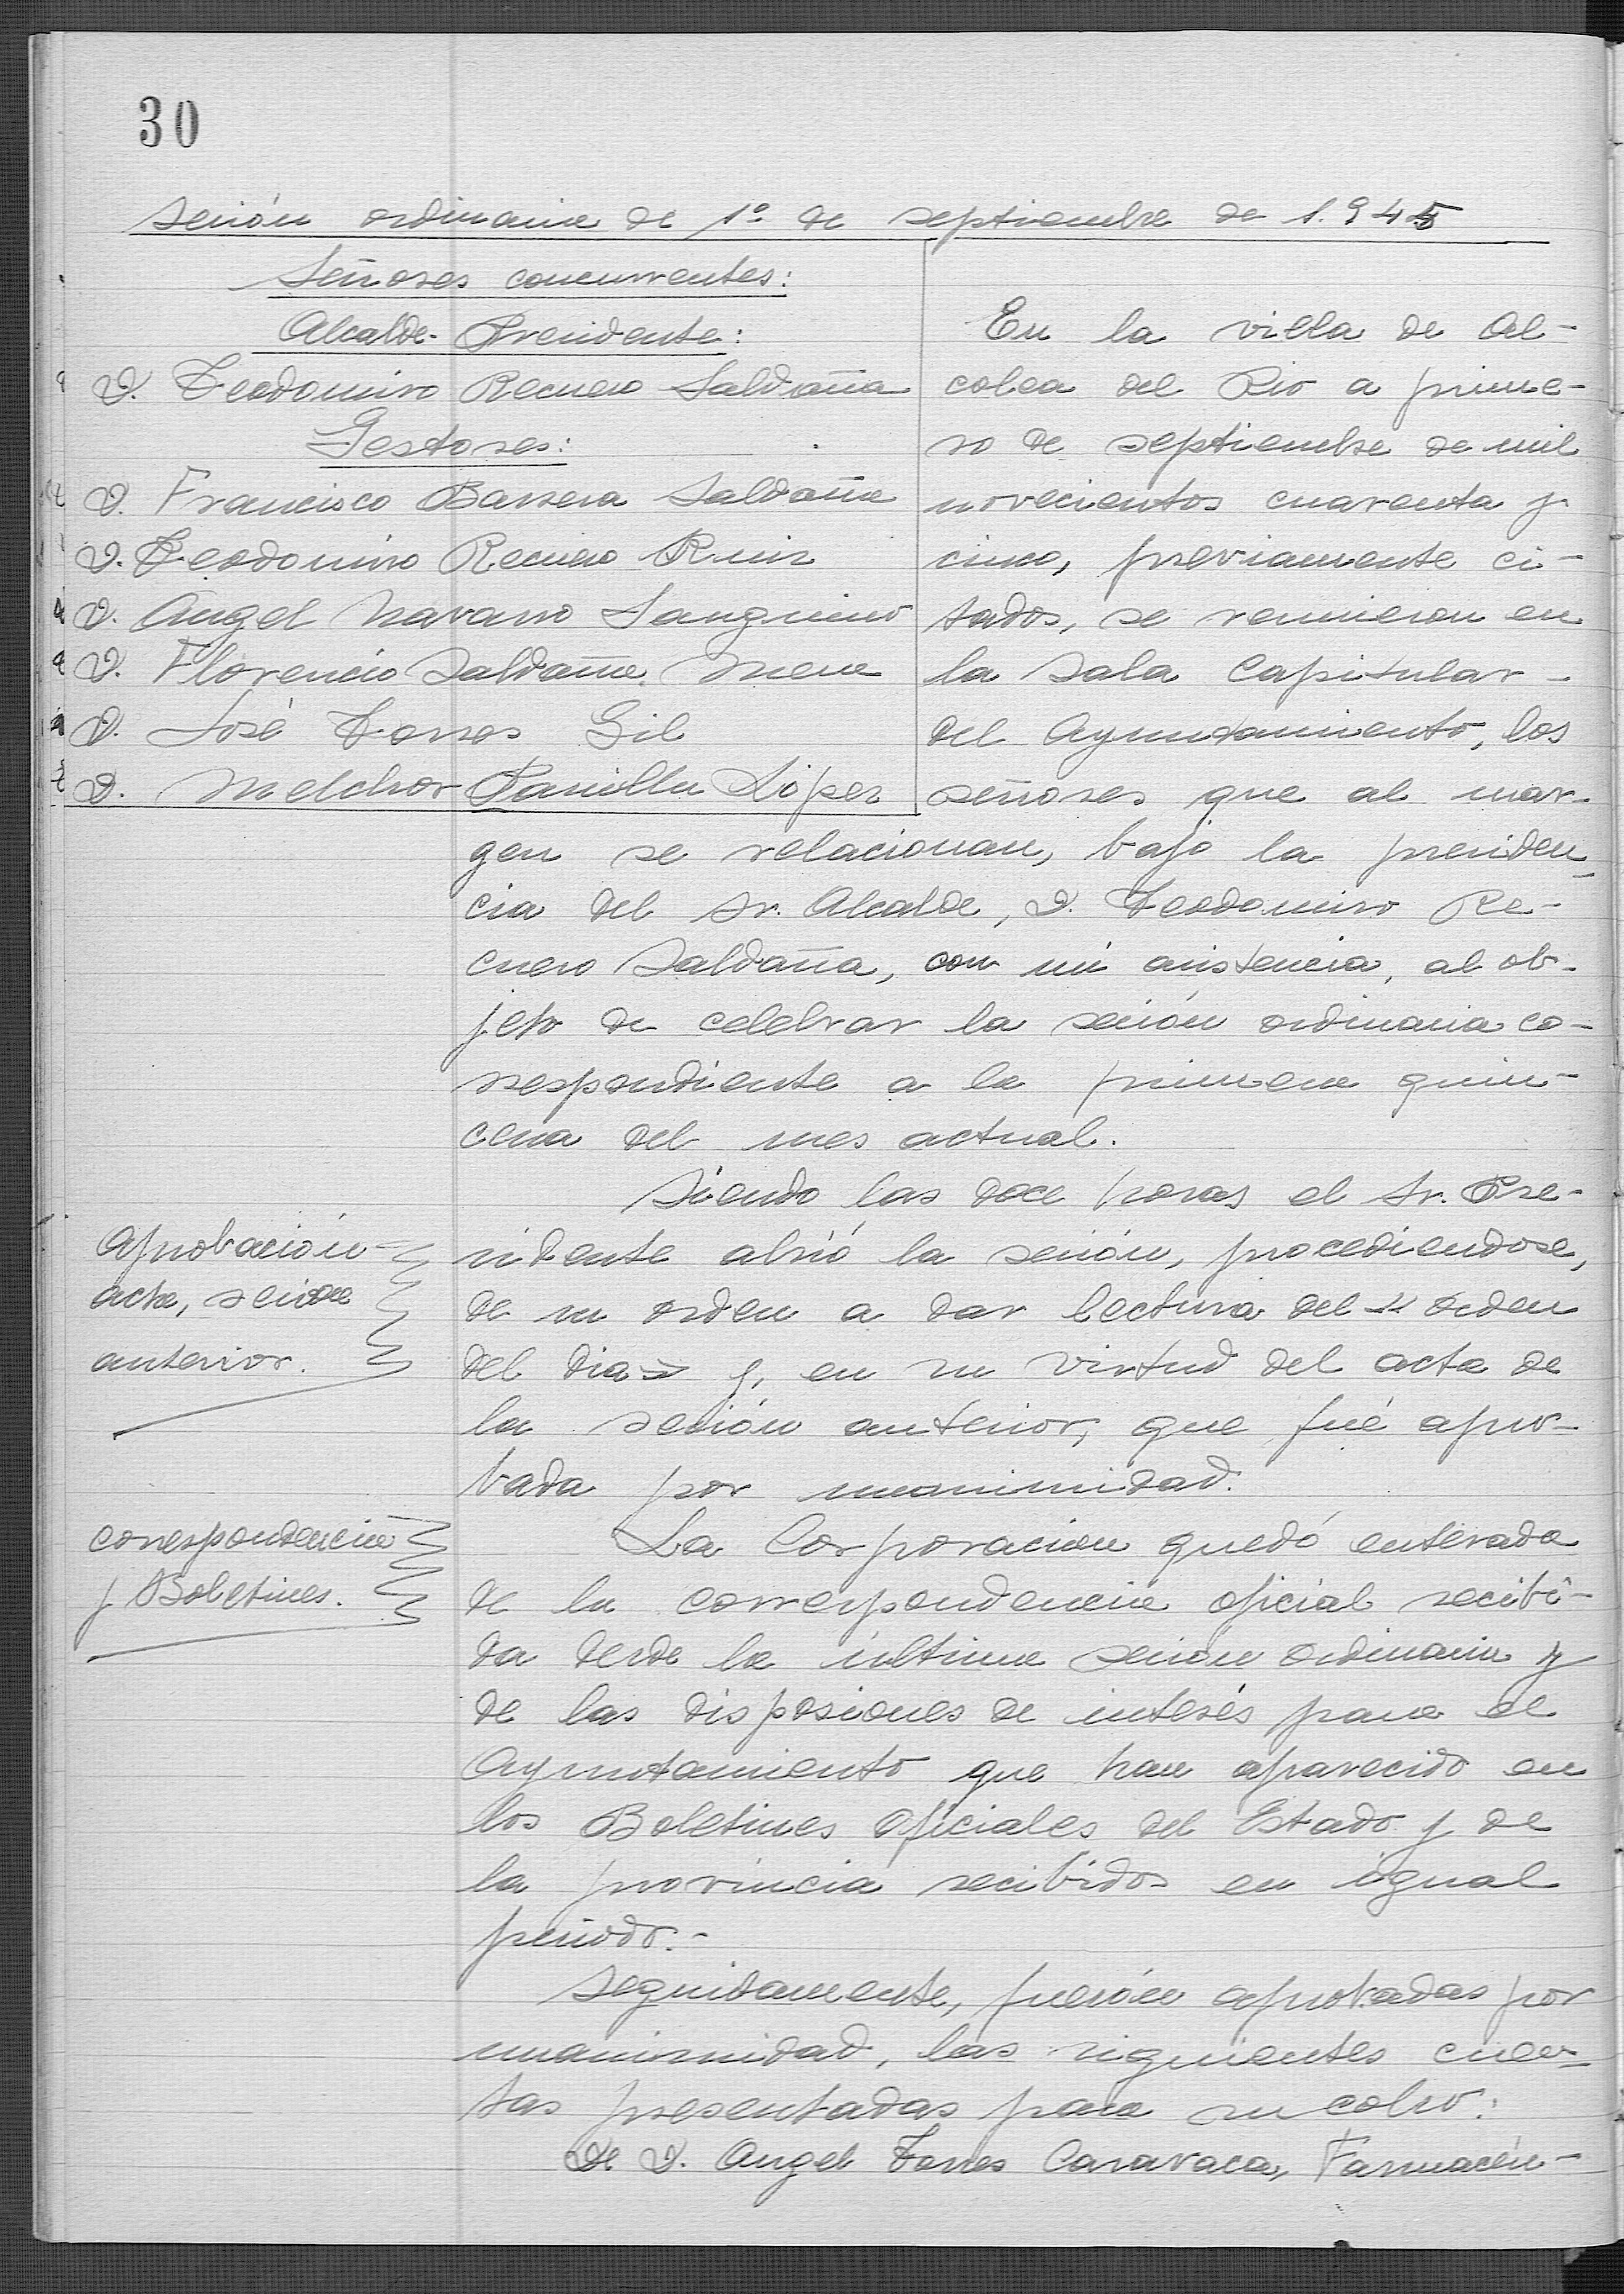 30
Sesión ordinaria de 1º de septiembre de 1.945
Señores concurrentes:
Alcalde-Presidente:
D. Teodomiro Recuero Saldaña
Gestores:
D. Francisco Barrera Saldaña
D. Teodomiro Recuero Ruiz
D. Angel Navarro Sanguino
D. Florencio Saldaña Mena
D. José Torres Gil
D. Melchor López
En la villa de Al-
colea del Rio a prime-
ro de septiembre de mil
novecientos cuarenta y
cinco, previamente ci-
tados, se reunieron en
la Sala Capitular-
del Ayuntamiento, los
señores que al mar-
gen se relacionan, bajo la presiden-
cia del Sr. Alcalde, D. Teodomiro Re-
cuero Saldaña, con mi asistencia, al ob-
jeto de celebrar la sesión ordinaria co-
rrespondiente a la primera quin-
cena del mes actual.
Siendo las doce horas el Sr. Pre-
Aprobación
acta, sesion
anterior.
sidente abrió la sesión, procediendose,
de su orden a dar lectura del "orden
del dia" y, en su virtud del acta de
la sesión anterior, que fué apro-
bada por unanimidad.
correspondencia
y Boletines.
La Corporacion quedó enterada
de la correspondencia oficial recibi-
da desde la última sesión ordinaria y
de las disposiones de interés para el
Ayuntamiento que han aparecido en
los Boletines Oficiales del Estado y de
la provincia recibidos en igual
periodo.-
Seguidamente, fuerón aprobadas por
unanimidad, las siguientes cuen-
tas presentadas para su cobro:
De D. Angel Torres Caravaca, Farmacéu-